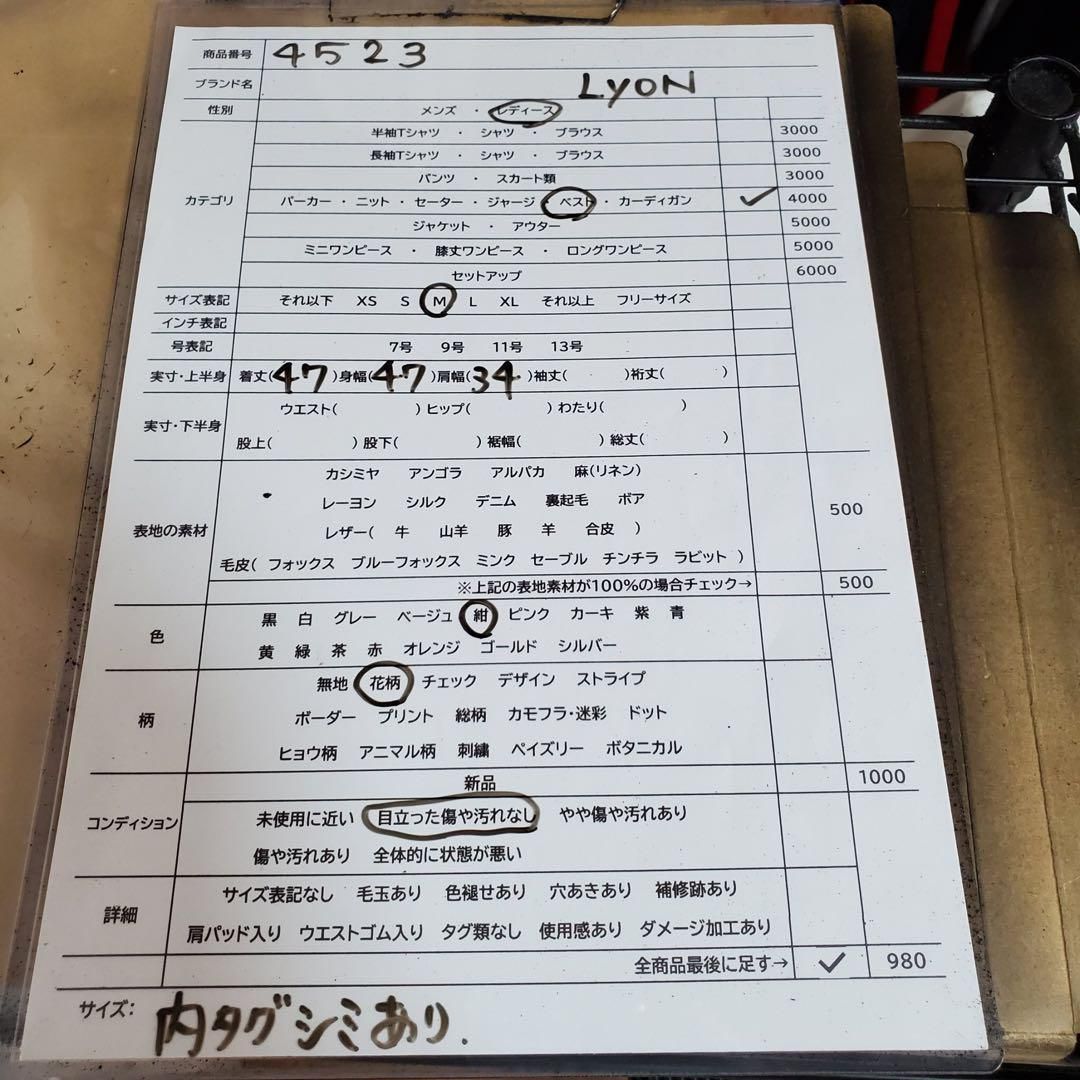 商品番号 4523
ブランド名 LyoN
性別 メンズ ・ レディース
半袖Tシャツ ・ シャツ ・ ブラウス 3000
長袖Tシャツ ・ シャツ ・ ブラウス 3000
パンツ ・ スカート類 3000
カテゴリ パーカー ・ ニット ・ セーター ・ ジャージ ・ ベスト ・ カーディガン ✓ 4000
ジャケット ・ アウター 5000
ミニワンピース ・ 膝丈ワンピース ・ ロングワンピース 5000
セットアップ 6000
サイズ表記 それ以下 XS S M L XL それ以上 フリーサイズ
インチ表記
号表記 7号 9号 11号 13号
実寸・上半身 着丈(47)身幅(47)肩幅(34)袖丈( )裄丈( )
実寸・下半身 ウエスト( )ヒップ( )わたり( )
股上( )股下( )裾幅( )総丈( )
カシミヤ アンゴラ アルパカ 麻(リネン)
レーヨン シルク デニム 裏起毛 ボア 500
表地の素材 レザー( 牛 山羊 豚 羊 合皮 )
毛皮( フォックス ブルーフォックス ミンク セーブル チンチラ ラビット )
※上記の表地素材が100%の場合チェック→ 500
色 黒 白 グレー ベージュ 紺 ピンク カーキ 紫 青
黄 緑 茶 赤 オレンジ ゴールド シルバー
無地 花柄 チェック デザイン ストライプ
柄 ボーダー プリント 総柄 カモフラ・迷彩 ドット
ヒョウ柄 アニマル柄 刺繍 ペイズリー ボタニカル
新品 1000
コンディション 未使用に近い 目立った傷や汚れなし やや傷や汚れあり
傷や汚れあり 全体的に状態が悪い
詳細 サイズ表記なし 毛玉あり 色褪せあり 穴あきあり 補修跡あり
肩パッド入り ウエストゴム入り タグ類なし 使用感あり ダメージ加工あり
全商品最後に足す→ ✓ 980
サイズ: 内タグシミあり.